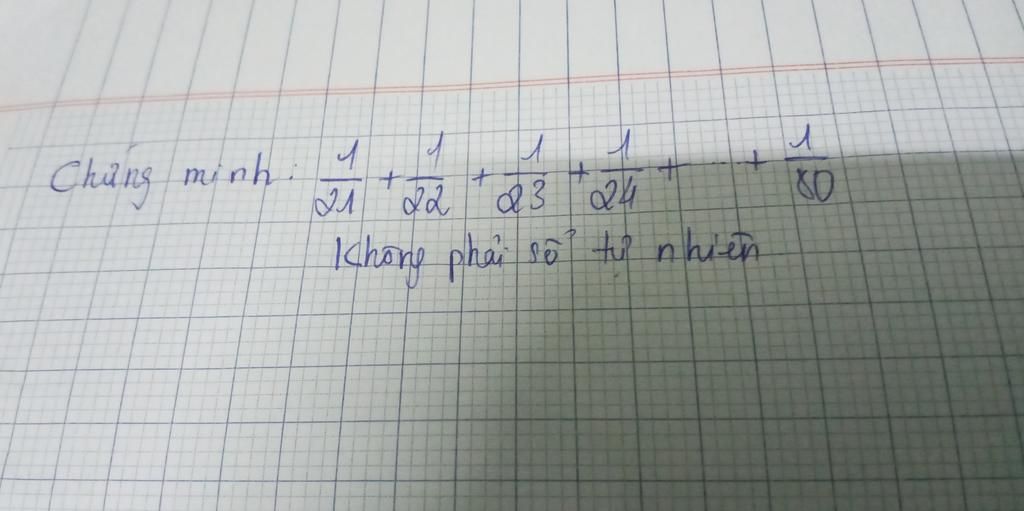 Chứng minh: 1/21 + 1/22 + 1/23 + 1/24 + ... + 1/80
Không phải số tự nhiên